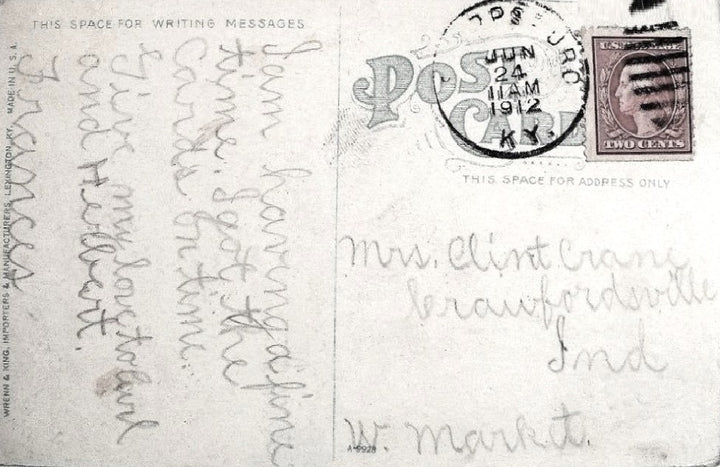 THIS SPACE FOR WRITING MESSAGES
I am having a fine
time. I got the
Cards on time.
Give my love to Earl
and Herbert.
Frances
WRENN & KING, IMPORTERS & MANUFACTURERS, LEXINGTON, KY. MADE IN U.S.A.
POST CARD
JUN
24
11 AM
1912
KY.
U.S. POSTAGE
TWO CENTS
THIS SPACE FOR ADDRESS ONLY
Mrs. Clint Crane
Crawfordsville
Ind
W. Market.
A-9928